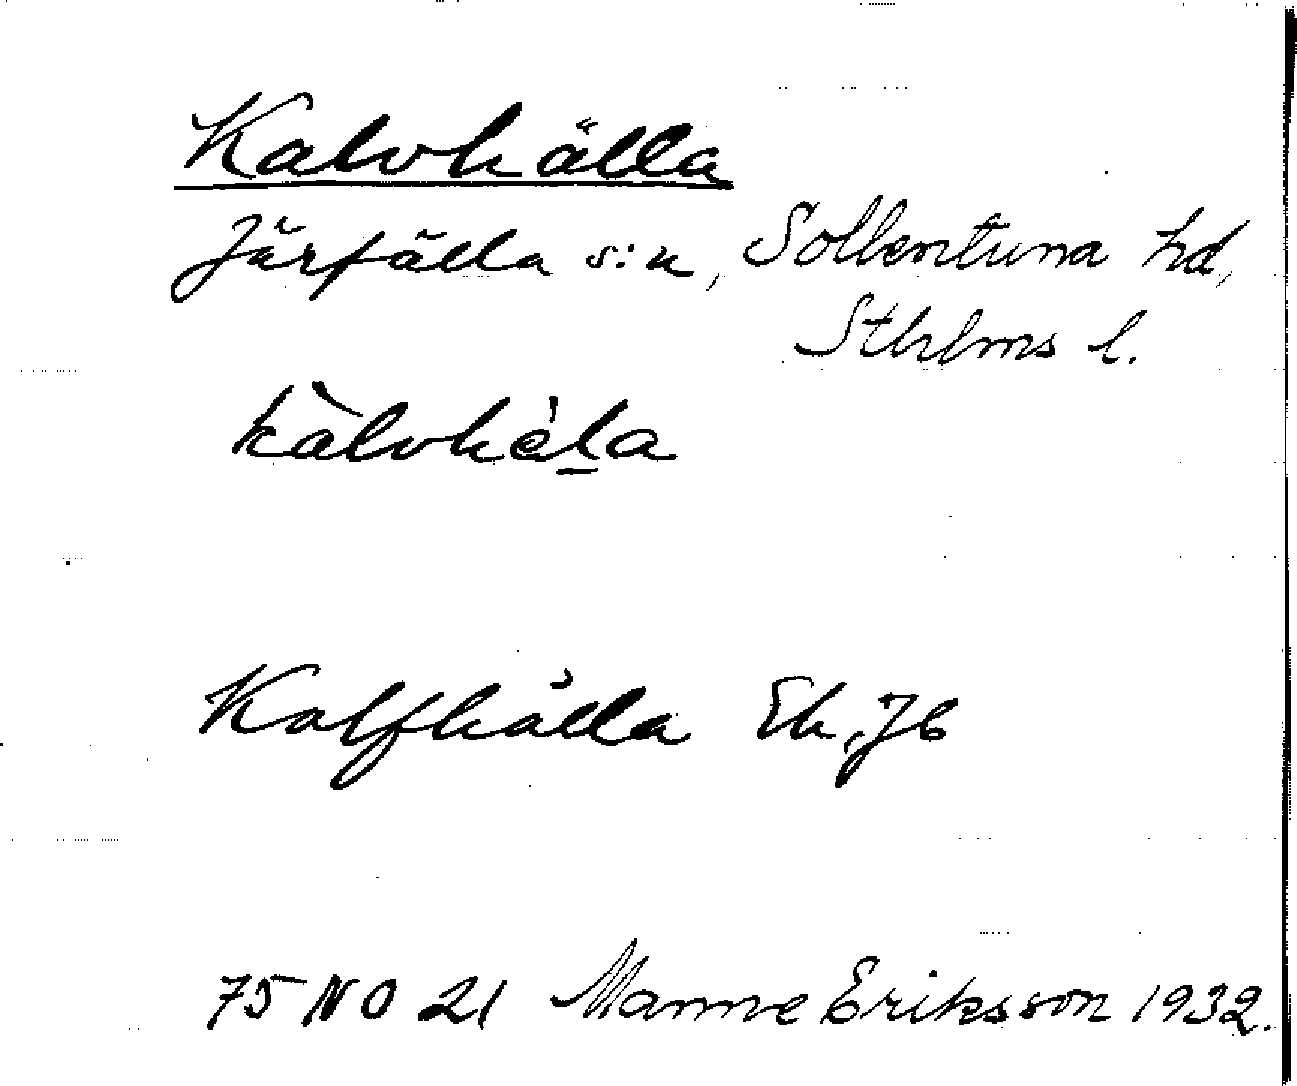 Kalvhälla
Järfälla s:n, Sollentuna hd,
Sthlms l.
kàlvhèla
Kalfhälla Ek, Jb
75 NO 21 Manne Eriksson 1932.